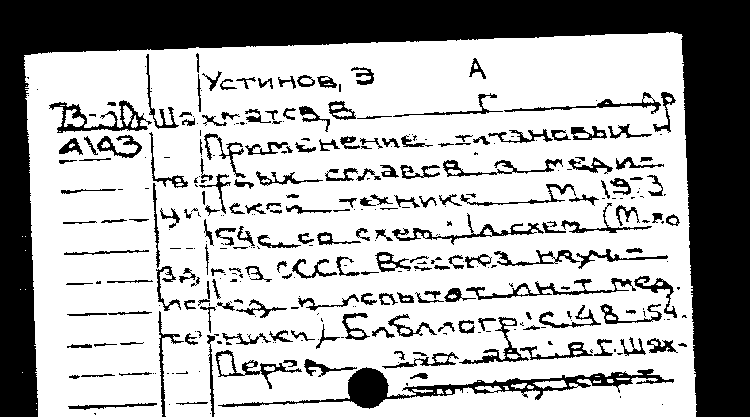 Устинов, Э А
73-50к Шахматов, В Г и др
4143 Применение титановых и
твердых сплавов в меди-
цинской технике. М., 1973
154с. со схем; 1л.схем (М-во
здрав СССР Всесоюз науч.-
исслед и испытат ин-т мед.
техники) Библиогр: с.148-154.
Перед загл. авт: В.Г.Шах-
См след. карт